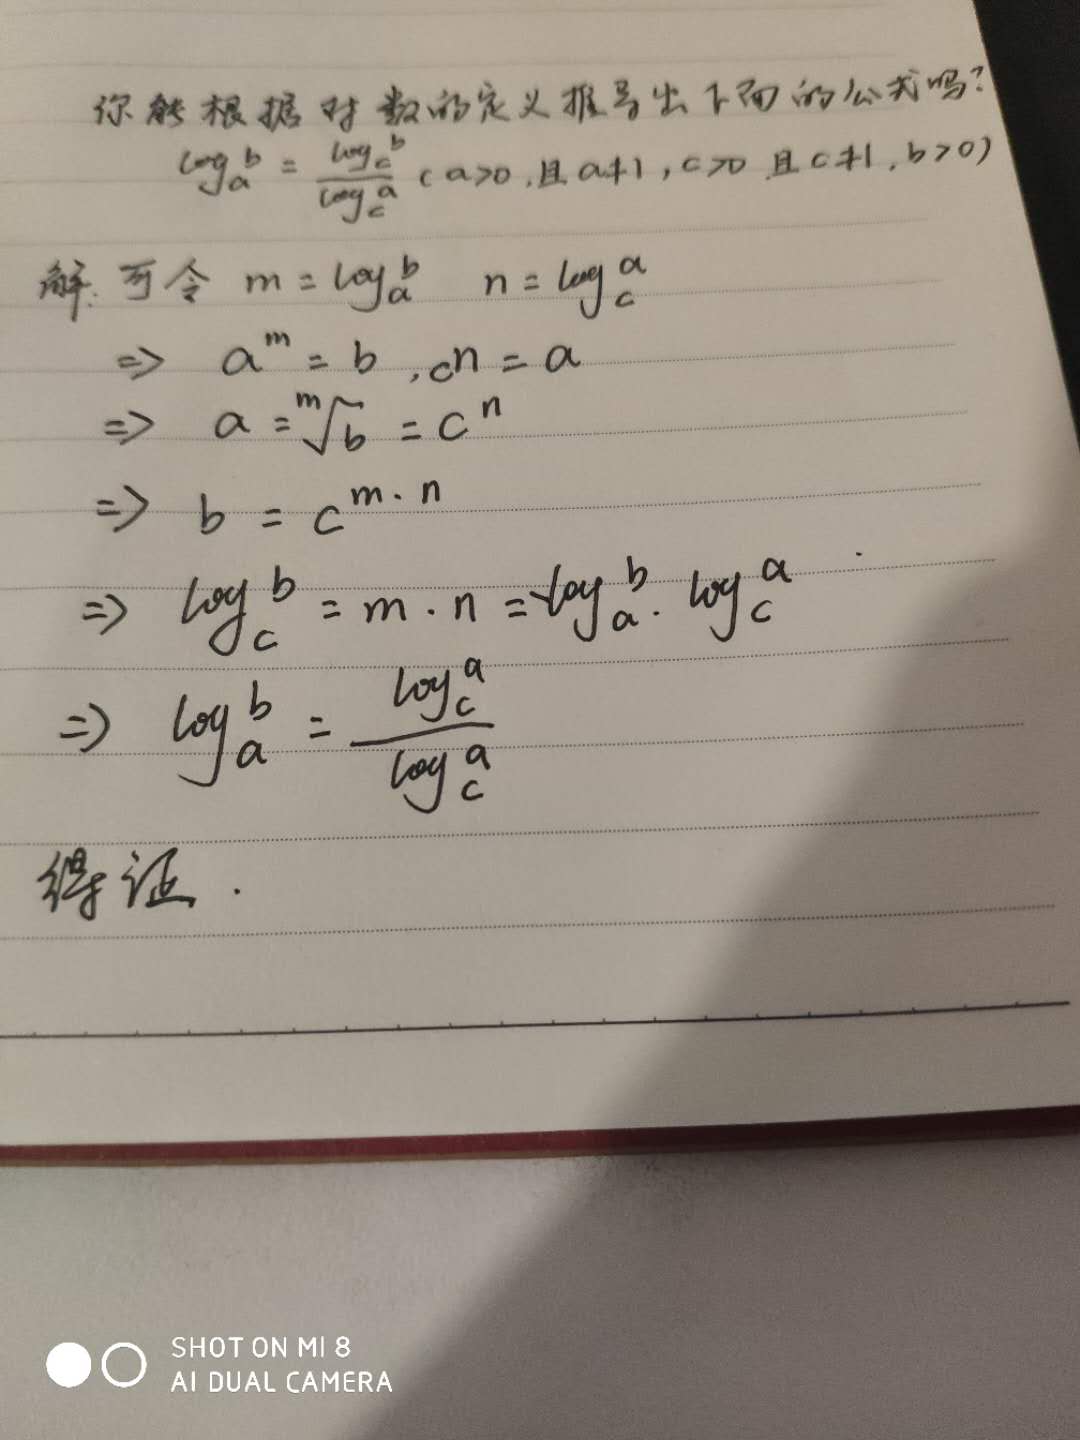 你能根据对数的定义推导出下面的公式吗?
log_a^b = log_c^b / log_c^a (a>0,且a≠1,c>0 且 c≠1,b>0)
解:可令 m = log_a^b n = log_c^a
=> a^m = b , c^n = a
=> a = ᵐ√b = c^n
=> b = c^{m·n}
=> log_c^b = m·n = log_a^b · log_c^a
=> log_a^b = log_c^a / log_c^a
得证.
SHOT ON MI 8
AI DUAL CAMERA